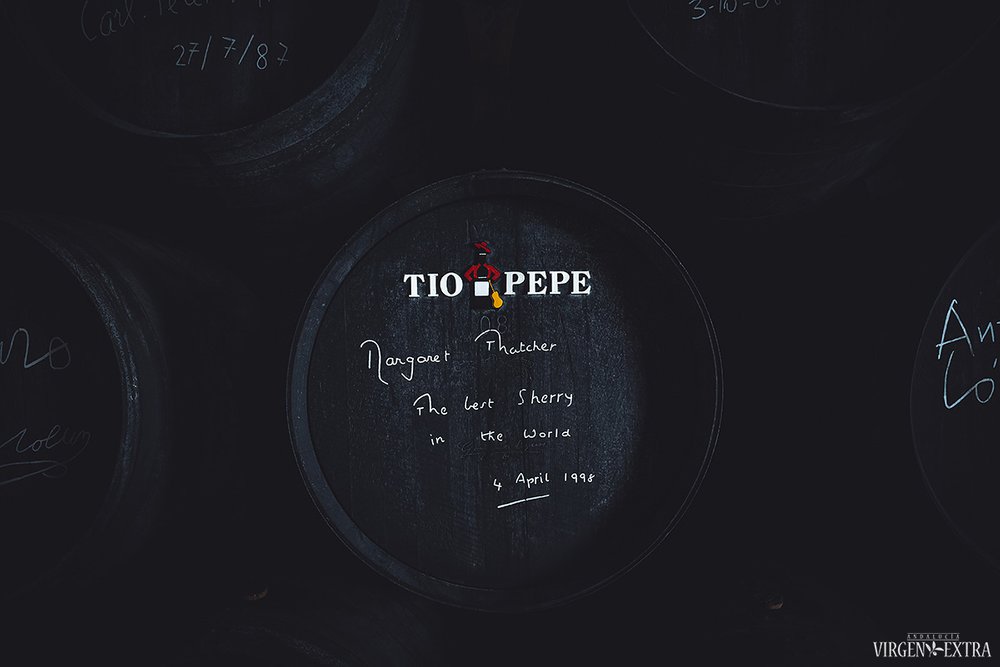 27/7/87
TIO PEPE
Margaret Thatcher
The best Sherry
in the World
4 April 1998
ANDALUCÍA
VIRGEN EXTRA